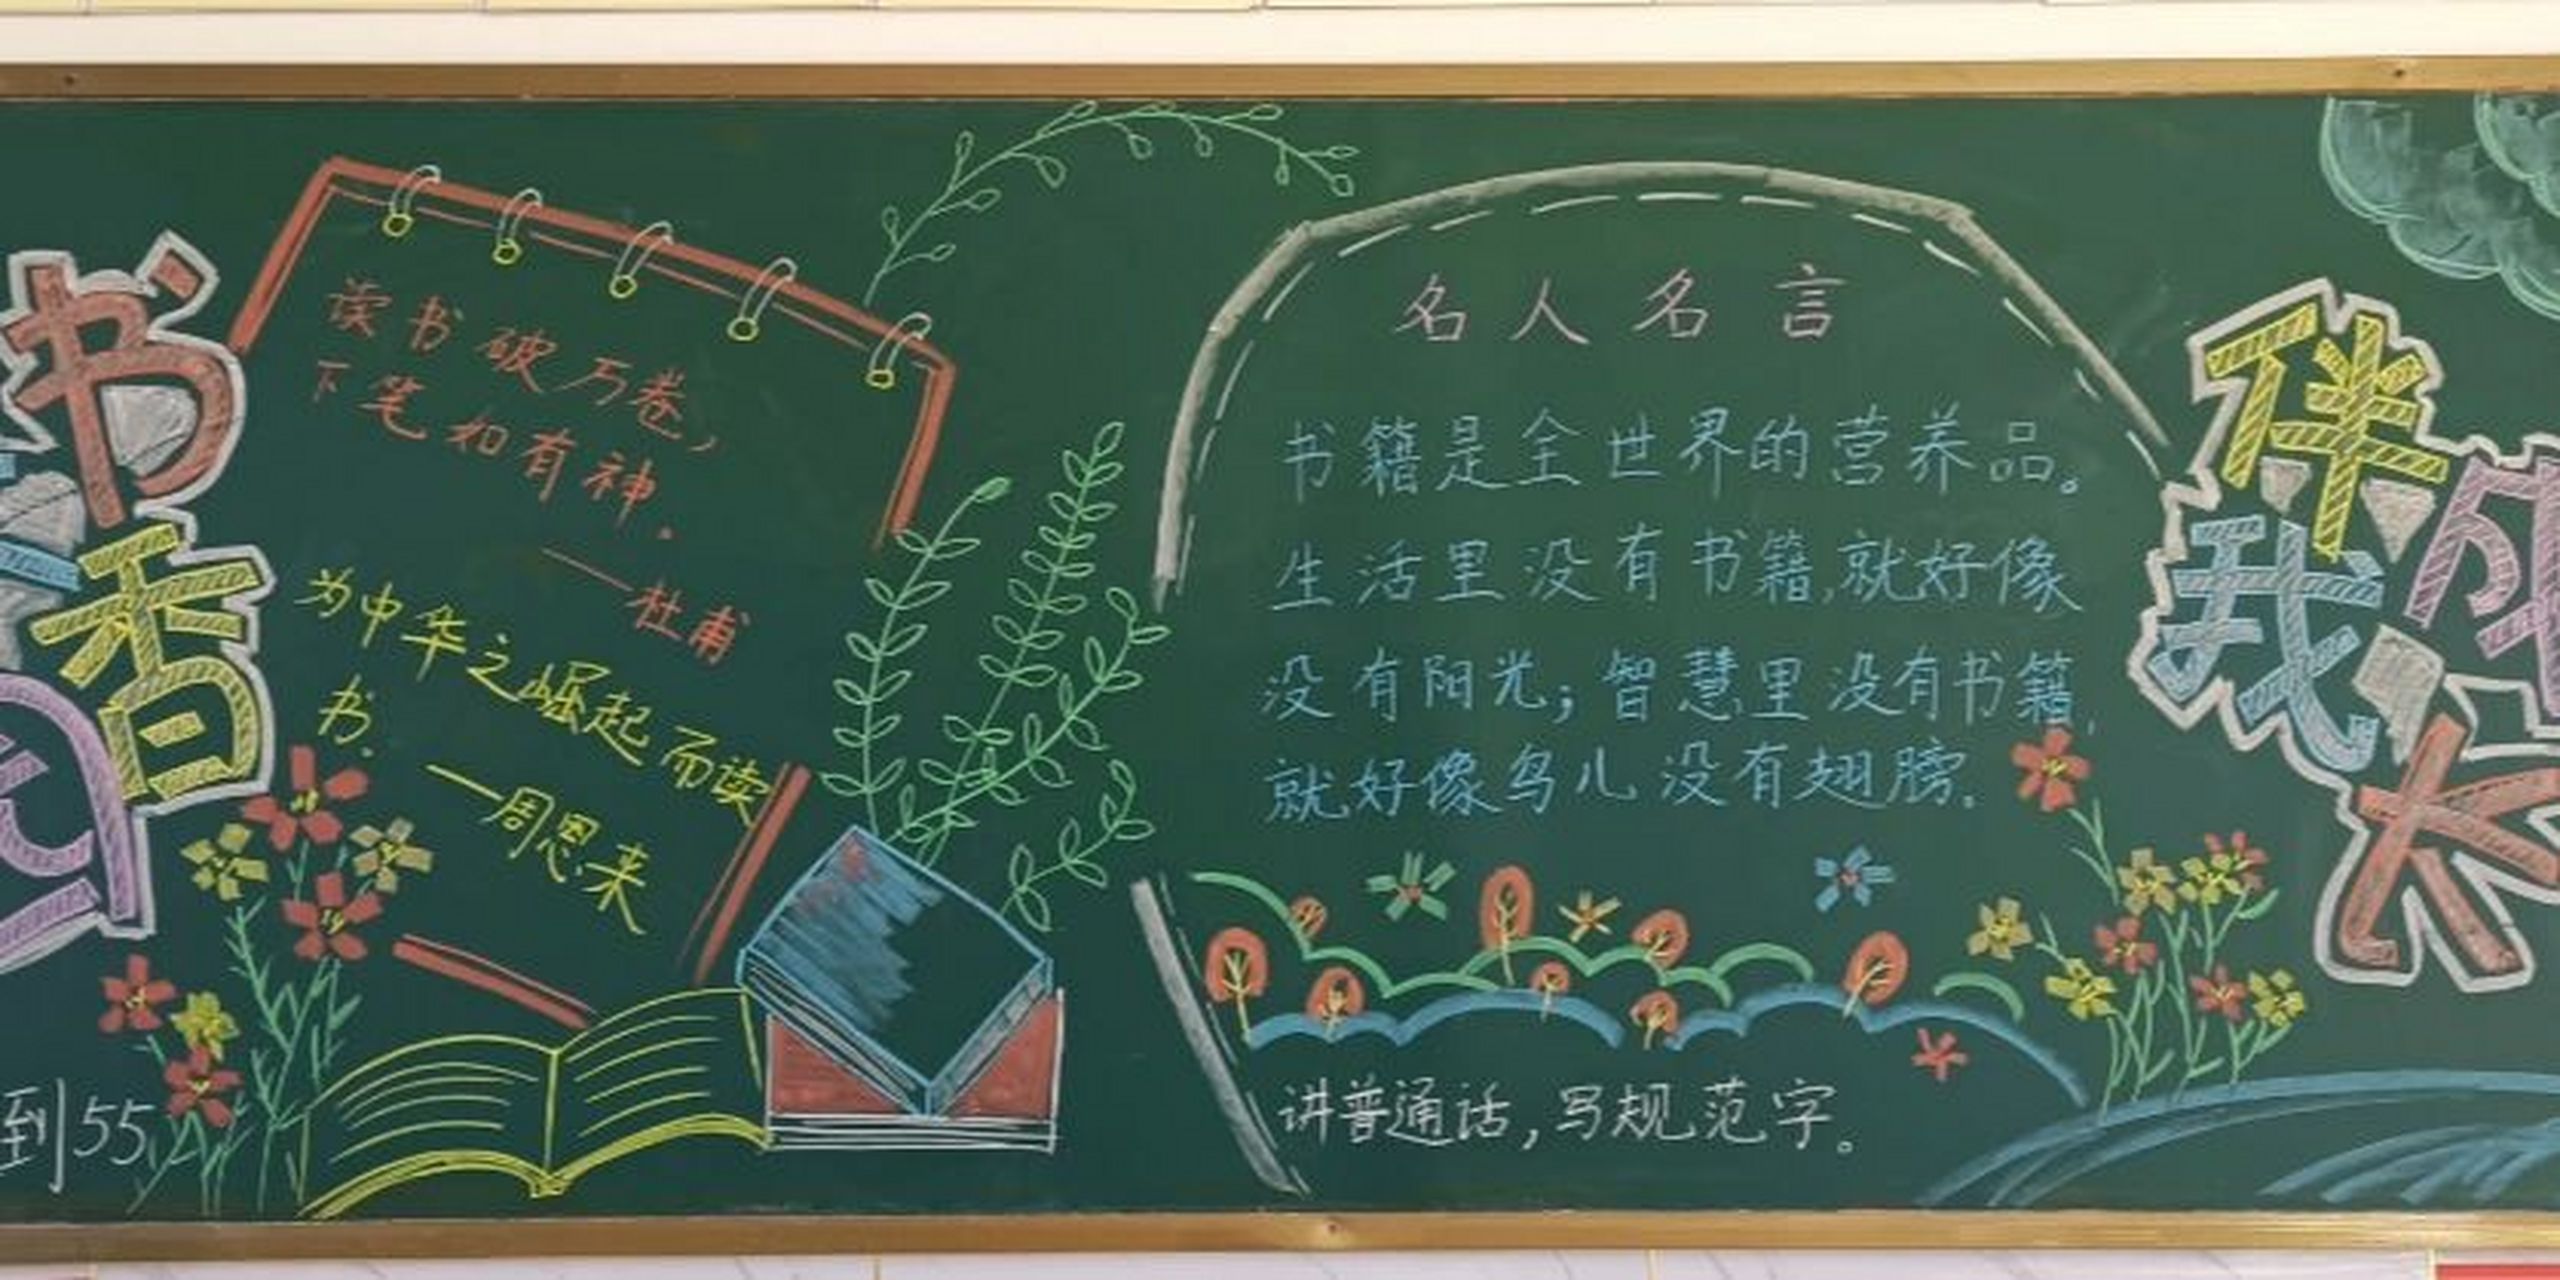 书
香
读书破万卷，
下笔如有神．
——杜甫
为中华之崛起而读
书．
——周恩来
到55
名人名言
书籍是全世界的营养品。
生活里没有书籍,就好像
没有阳光；智慧里没有书籍,
就好像鸟儿没有翅膀．
讲普通话，写规范字。
伴
我
成
长